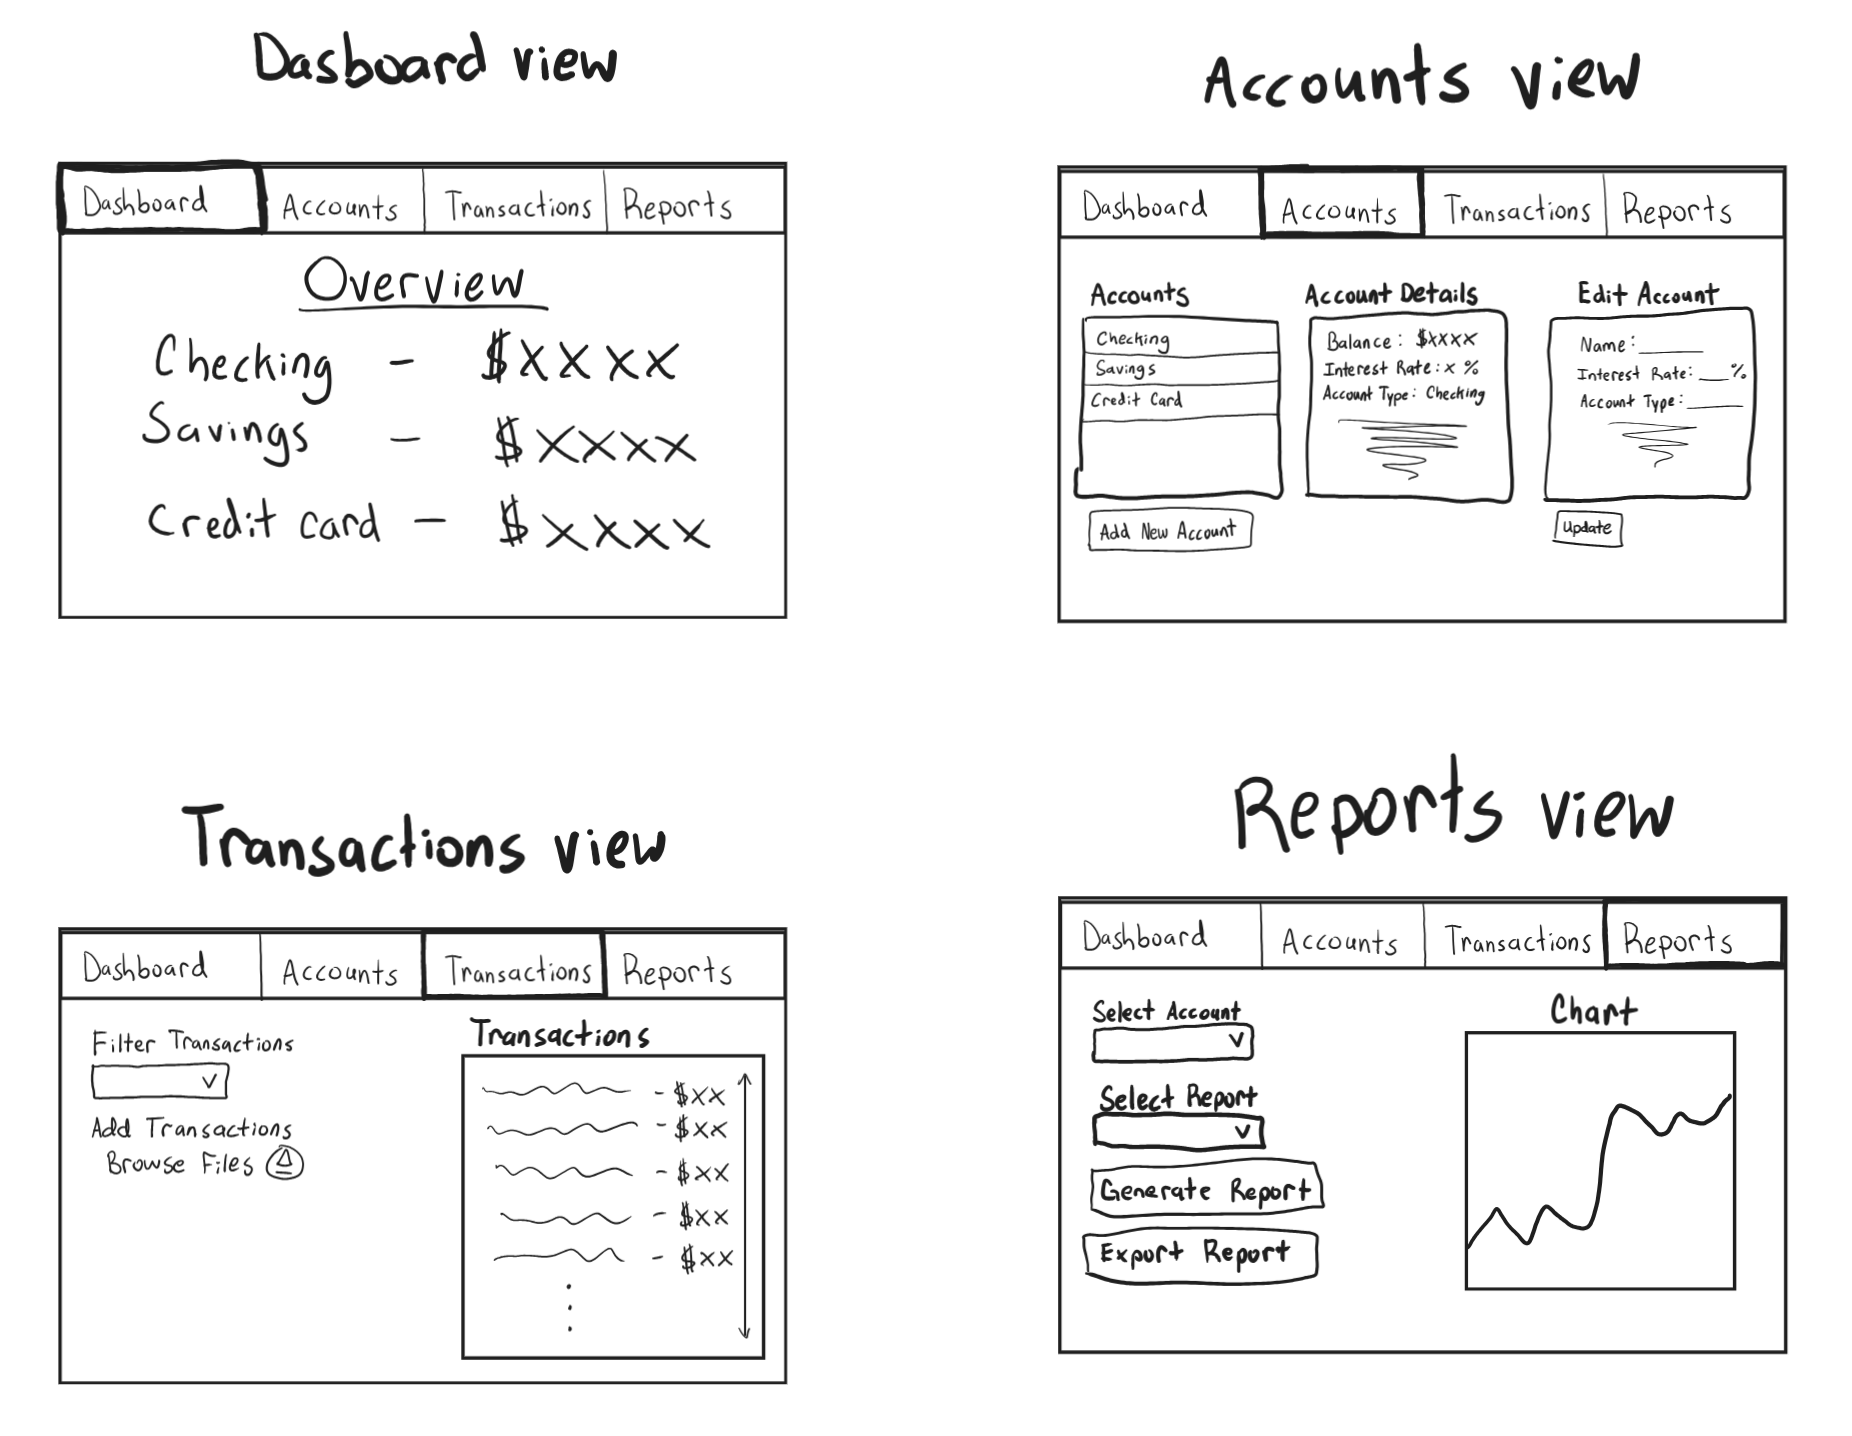 Dasboard view
Dashboard Accounts Transactions Reports
Overview
Checking - $XXXX
Savings - $XXXX
Credit card - $XXXX
Accounts view
Dashboard Accounts Transactions Reports
Accounts
Checking
Savings
Credit Card
Add New Account
Account Details
Balance: $XXXX
Interest Rate: x %
Account Type: Checking
Edit Account
Name: ______
Interest Rate: ___%
Account Type: _____
Update
Transactions view
Dashboard Accounts Transactions Reports
Filter Transactions
v
Add Transactions
Browse Files
Transactions
- $XX
- $XX
- $XX
- $XX
- $XX
Reports view
Dashboard Accounts Transactions Reports
Select Account
v
Select Report
v
Generate Report
Export Report
Chart